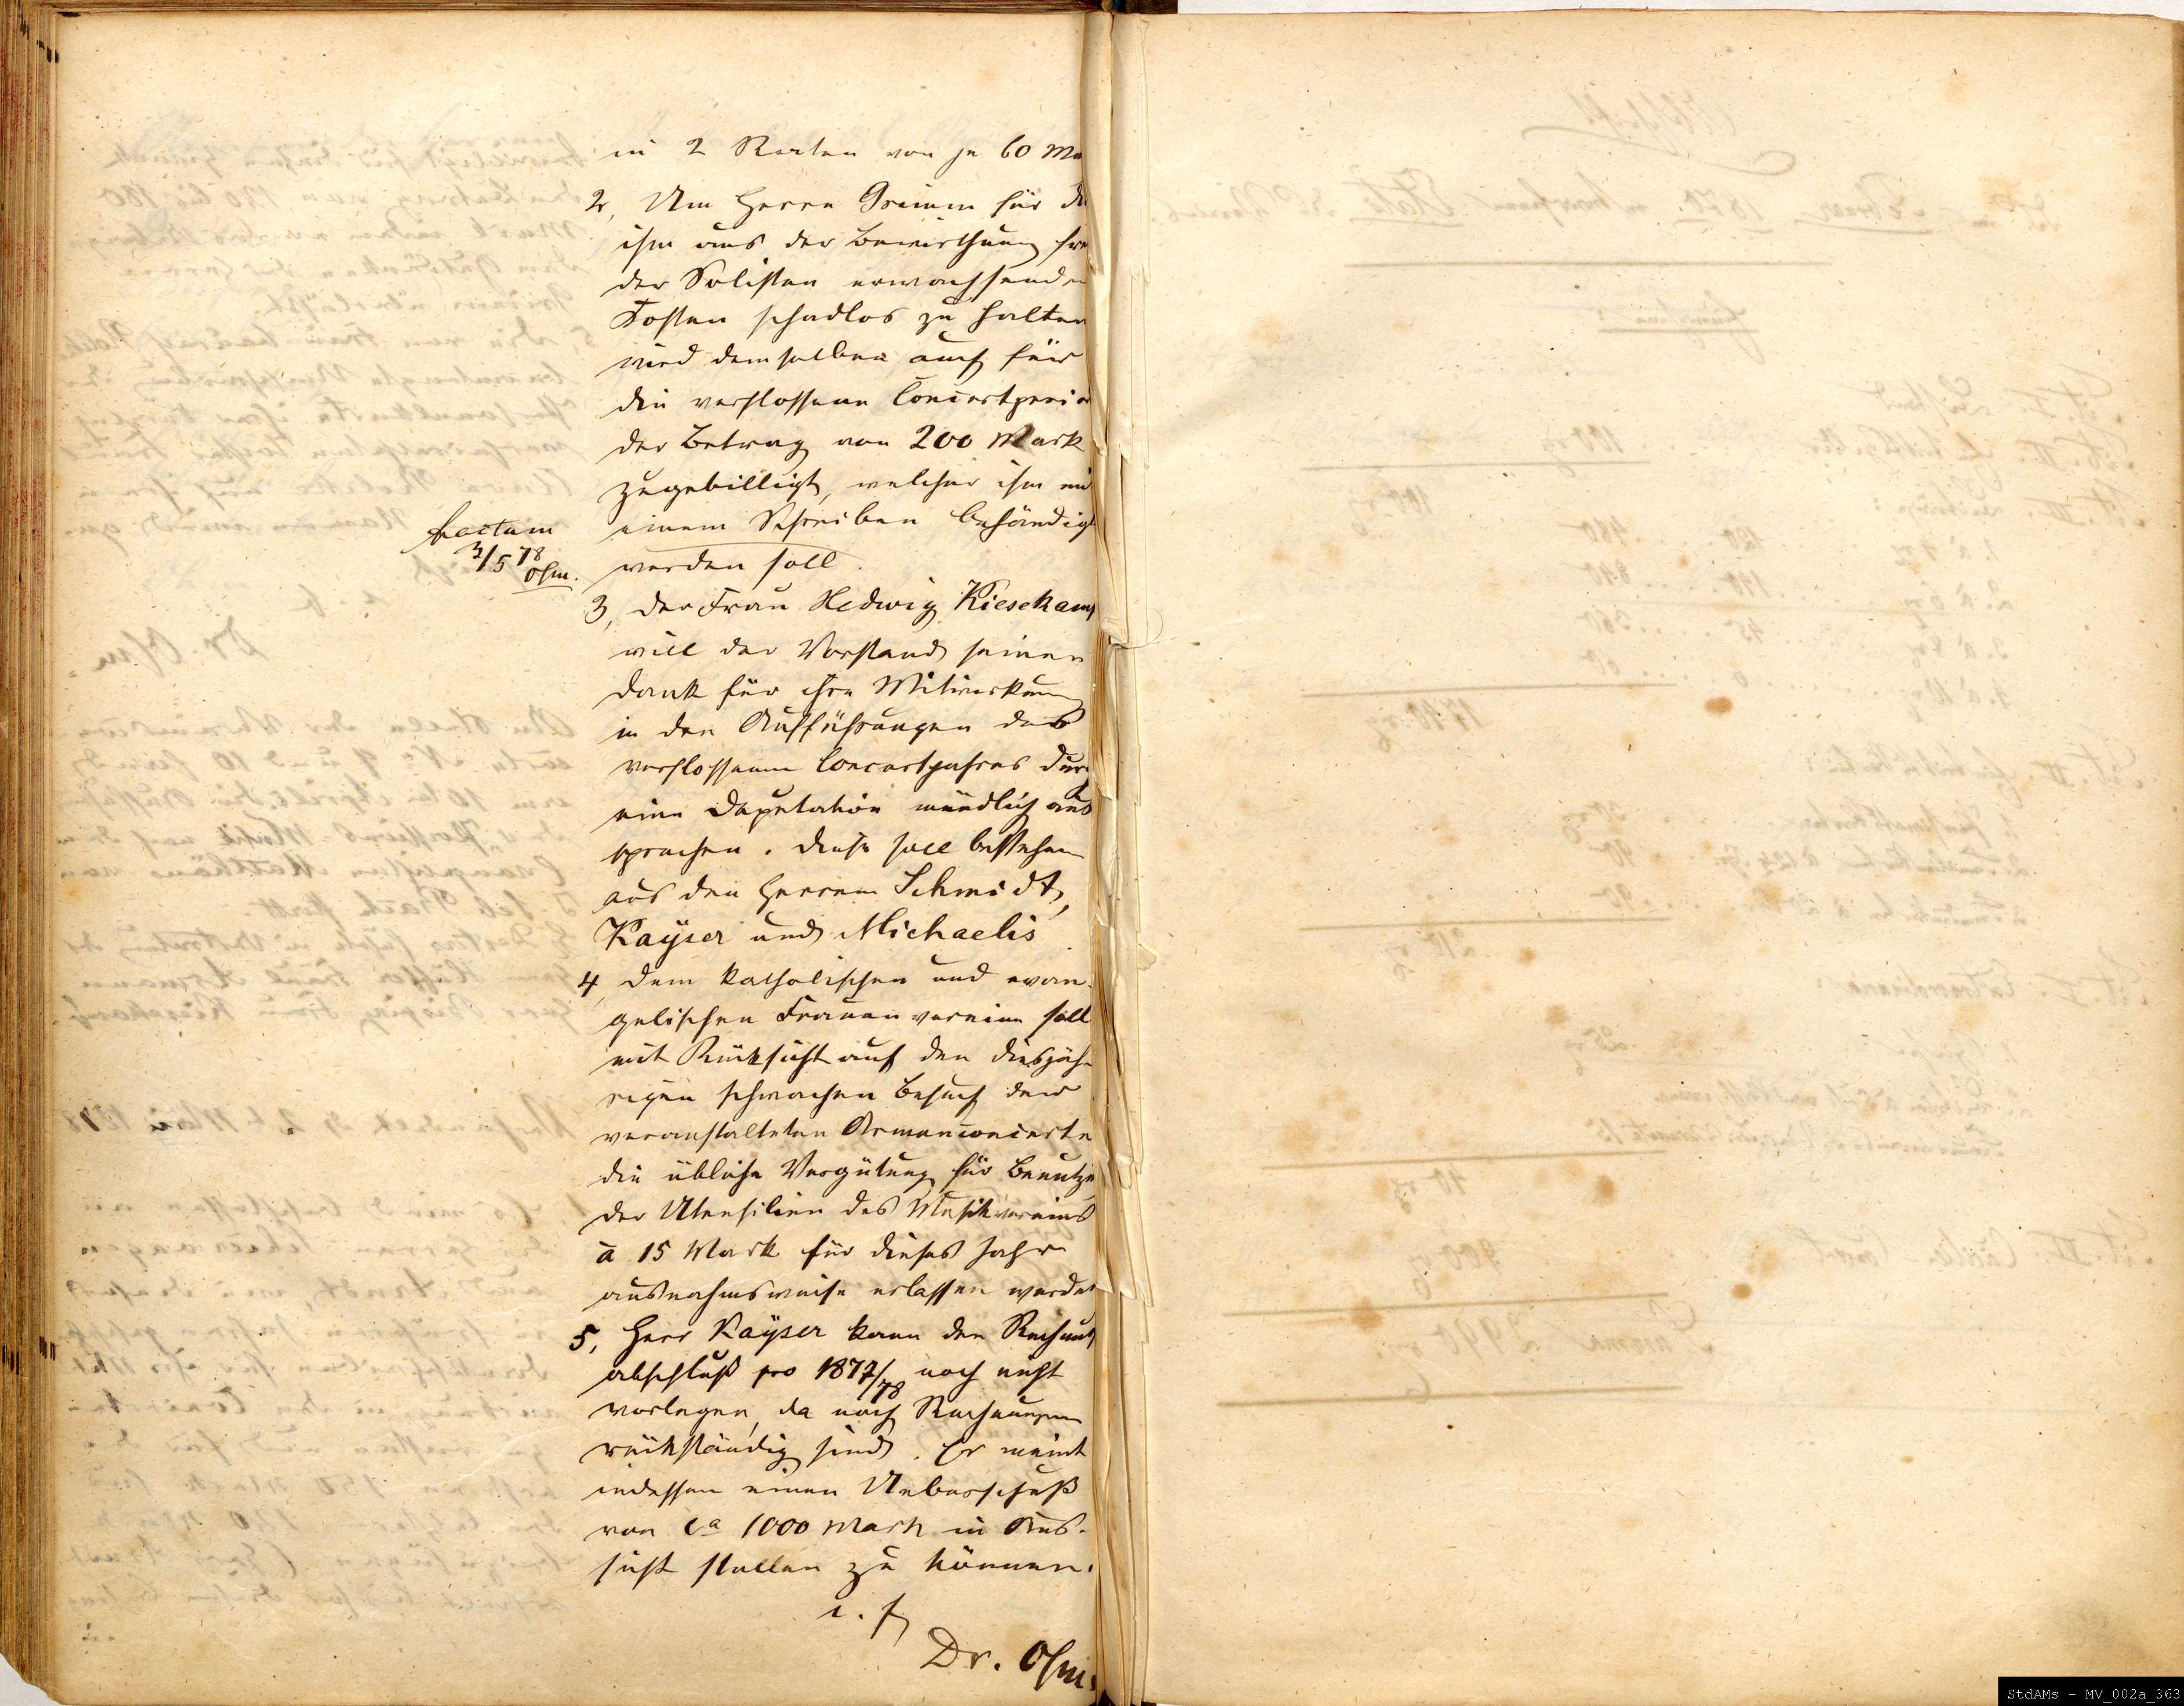 in 2 Raten von je 60 Ma
2, Um Herrn Grimm für di
ihm aus der Bewirthung frem
der Solisten erwachsenden
Kosten schadlos zu halten
wird demselben auch für
die verflossene Concertperio
der Betrag von 200 Mark
zugebilligt, welcher ihm mi
einem Schreiben behändigt
werden soll.
factum
3/5 78
Ohm.
3, Der Frau Hedwig Kiesekamp
will der Vorstand seinen
Dank für ihre Mitwirkung
in den Aufführungen des
verflossenen Concertjahres durch
eine Deputation mündlich aus
sprechen. Diese soll bestehen
aus den Herren Schmidt,
Kaÿser und Michaelis.
4, Dem katholischen und evan-
gelischen Frauenvereine soll
mit Rücksicht auf den diesjäh-
rigen schwachen Besuch der
veranstalteten Armenconcerte
die übliche Vergütung für Benutzg
der Utensilien des Musikvereins
à 15 Mark für dieses Jahr
ausnahmsweise erlassen werden
5, Herr Kaÿser kann den Rechnungs
abschluß pro 1877/78 noch nicht
vorlegen, da noch Rechnungen
rückständig sind. Er meint
indessen einen Ueberschuß
von ca 1000 Mark in Aus-
sicht stellen zu können.
Dr. Ohm.
StdAMs - MV_002a_363